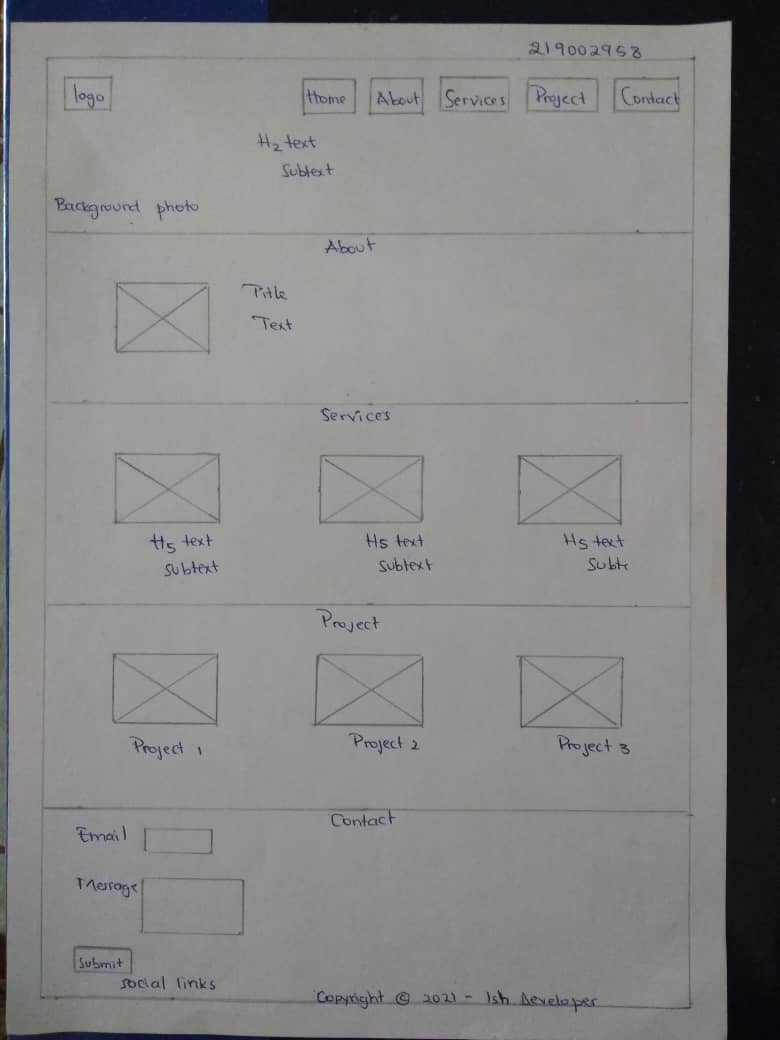 219002958
logo Home About Services Project Contact
H2 text
Subtext
Background photo
About
Title
Text
Services
H5 text H5 text H5 text
Subtext Subtext Subte
Project
Project 1 Project 2 Project 3
Contact
Email
Message
Submit
social links
Copyright © 2021 - Ish Developer